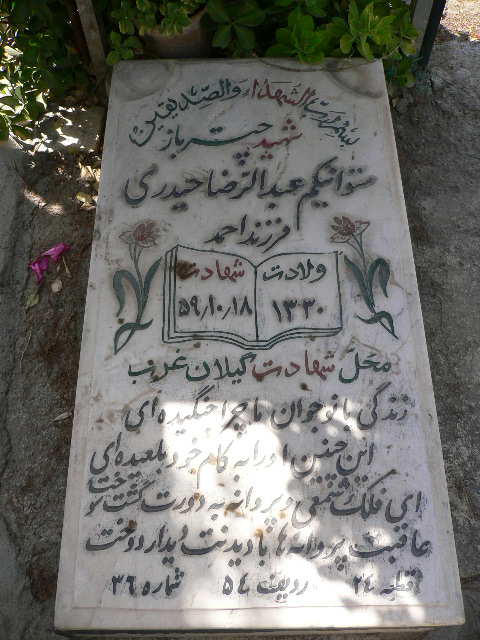 بسم رب الشهداء والصدیقین
شهید چترباز
ستوانیکم عبدالرضا حیدری
فرزند احمد
ولادت شهادت
۱۳۳۰ ۵۹/۱۰/۱۸
محل شهادت گیلان غرب
زندگی با نوجوان ما چرا جنگیده‌ای
این چنین او را به کام خود بلعیده‌ای
ای فلک شمعی و پروانه به دورت گشت سوخت
عاقبت پروانه ها با دیدنت دیدار دوخت
قطعه ۲۴ ردیف ۵۴ شماره ۳۶